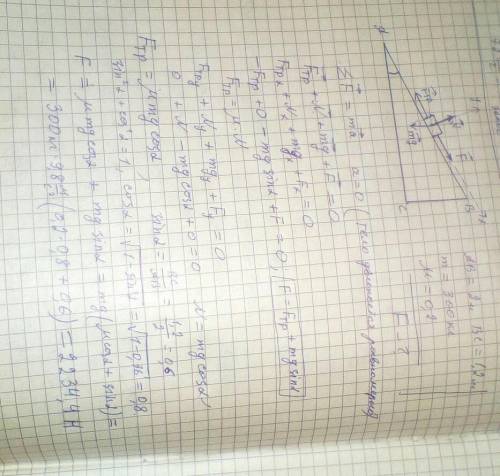 AB = 2м BC = 1,2м
m = 300кг
μ = 0,2
F - ?
A
B
C
x
y
N
F
Fтр
mg
ΣF = ma a = 0 (тело движется равномерно)
Fтр + N + mg + F = 0
Fтрx + Nx + mgx + Fx = 0
-Fтр + 0 - mg sinα + F = 0, F = Fтр + mg sinα
Fтр = μ·N
Fтрy + Ny + mgy + Fy = 0
0 + N - mg cosα + 0 = 0 N = mg cosα
Fтр = μ mg cosα sinα = BC/AB = 1,2/2 = 0,6
sin²α + cos²α = 1, cosα = √1-sin²α = √1-0,36 = 0,8
F = μ mg cosα + mg sinα = mg(μ cosα + sinα) =
= 300кг · 9,8 (0,2 · 0,8 + 0,6) = 2234,4 Н